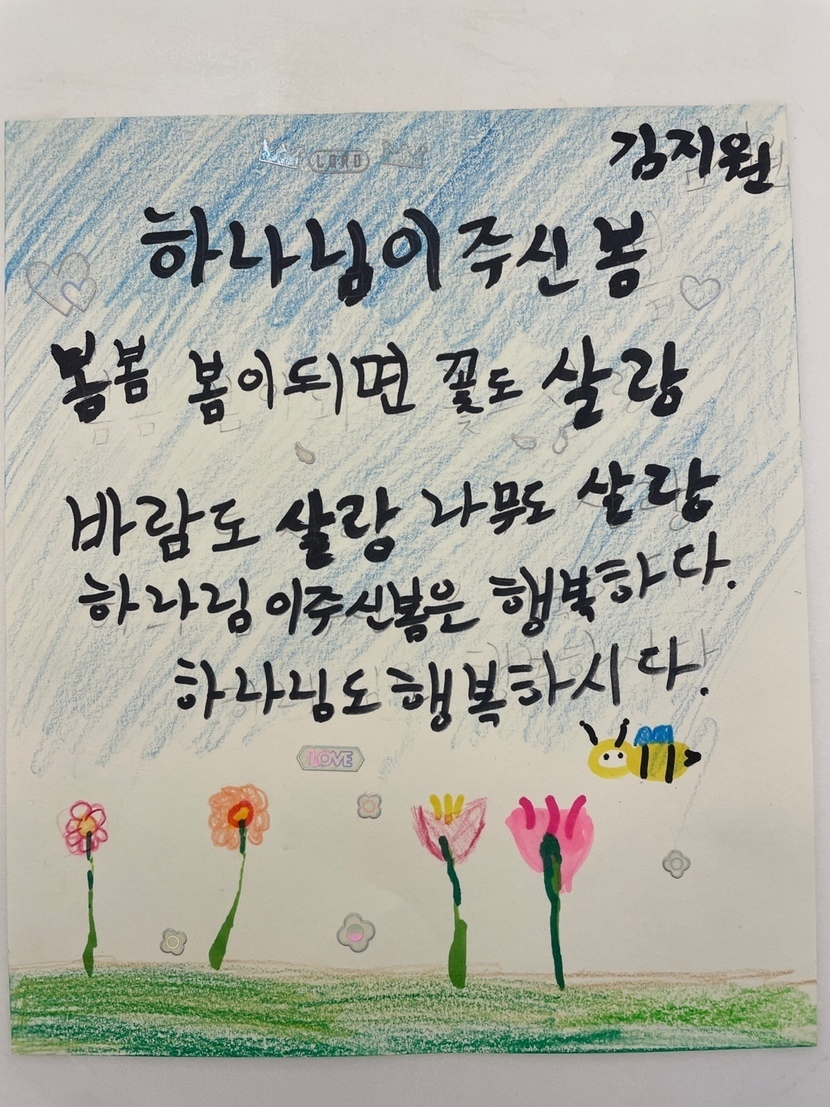 LORD
김지원
하나님이주신봄
봄봄 봄이되면 꽃도 살랑
바람도 살랑 나무도 살랑
하나님이주신봄은 행복하다.
하나님도행복하시다.
LOVE